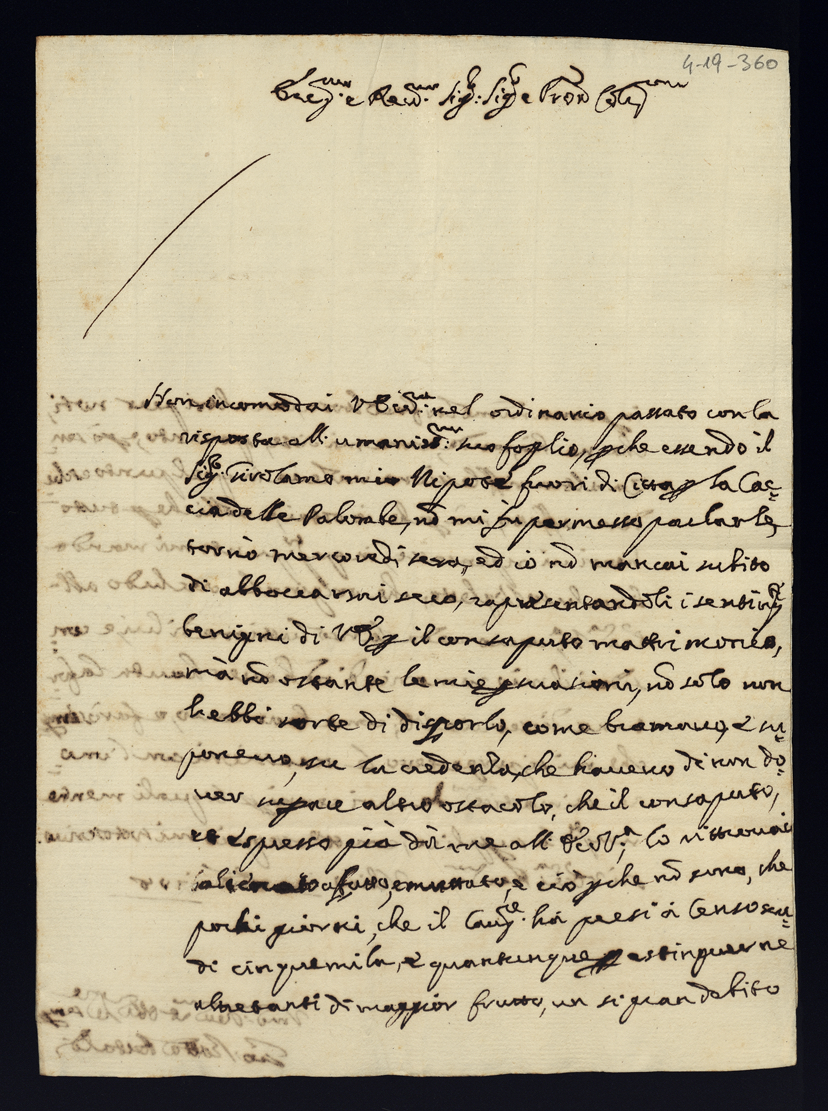 4-19-360
e Rev.mo Sig.r Sig.r e Pron Col.mo
Non incomodai V S nel ordinario passato con la
risposta all' umaniss.mo suo foglio, p che essendo il
Sig.r Girolamo mio Nipote fuori di Città p la Cac=
cia delle Palombe, nō mi fu permesso parlarle,
tornò mercordi sera, ed io nō mancai subito
di abboccarmi seco, rapresentandoli i sentim.ti
benigni di V S p il consaputo matrimonio,
mà nō ostante le mie psuasioni, nō solo non
hebbi sorte di disporlo, come bramavo, e su=
ponevo, su la credenza, che havevo di non do=
ver supare altro ostacolo, che il consaputo,
et espresso già dà me all' lo ritrovai
affatto, e mutato e ciò p che nō sono, che
pochi giorni, che il Cav.re hà presi à Censo scu=
di cinquemila, e quantunque p estinguerne
altretanti di maggior frutto, un si gran debito